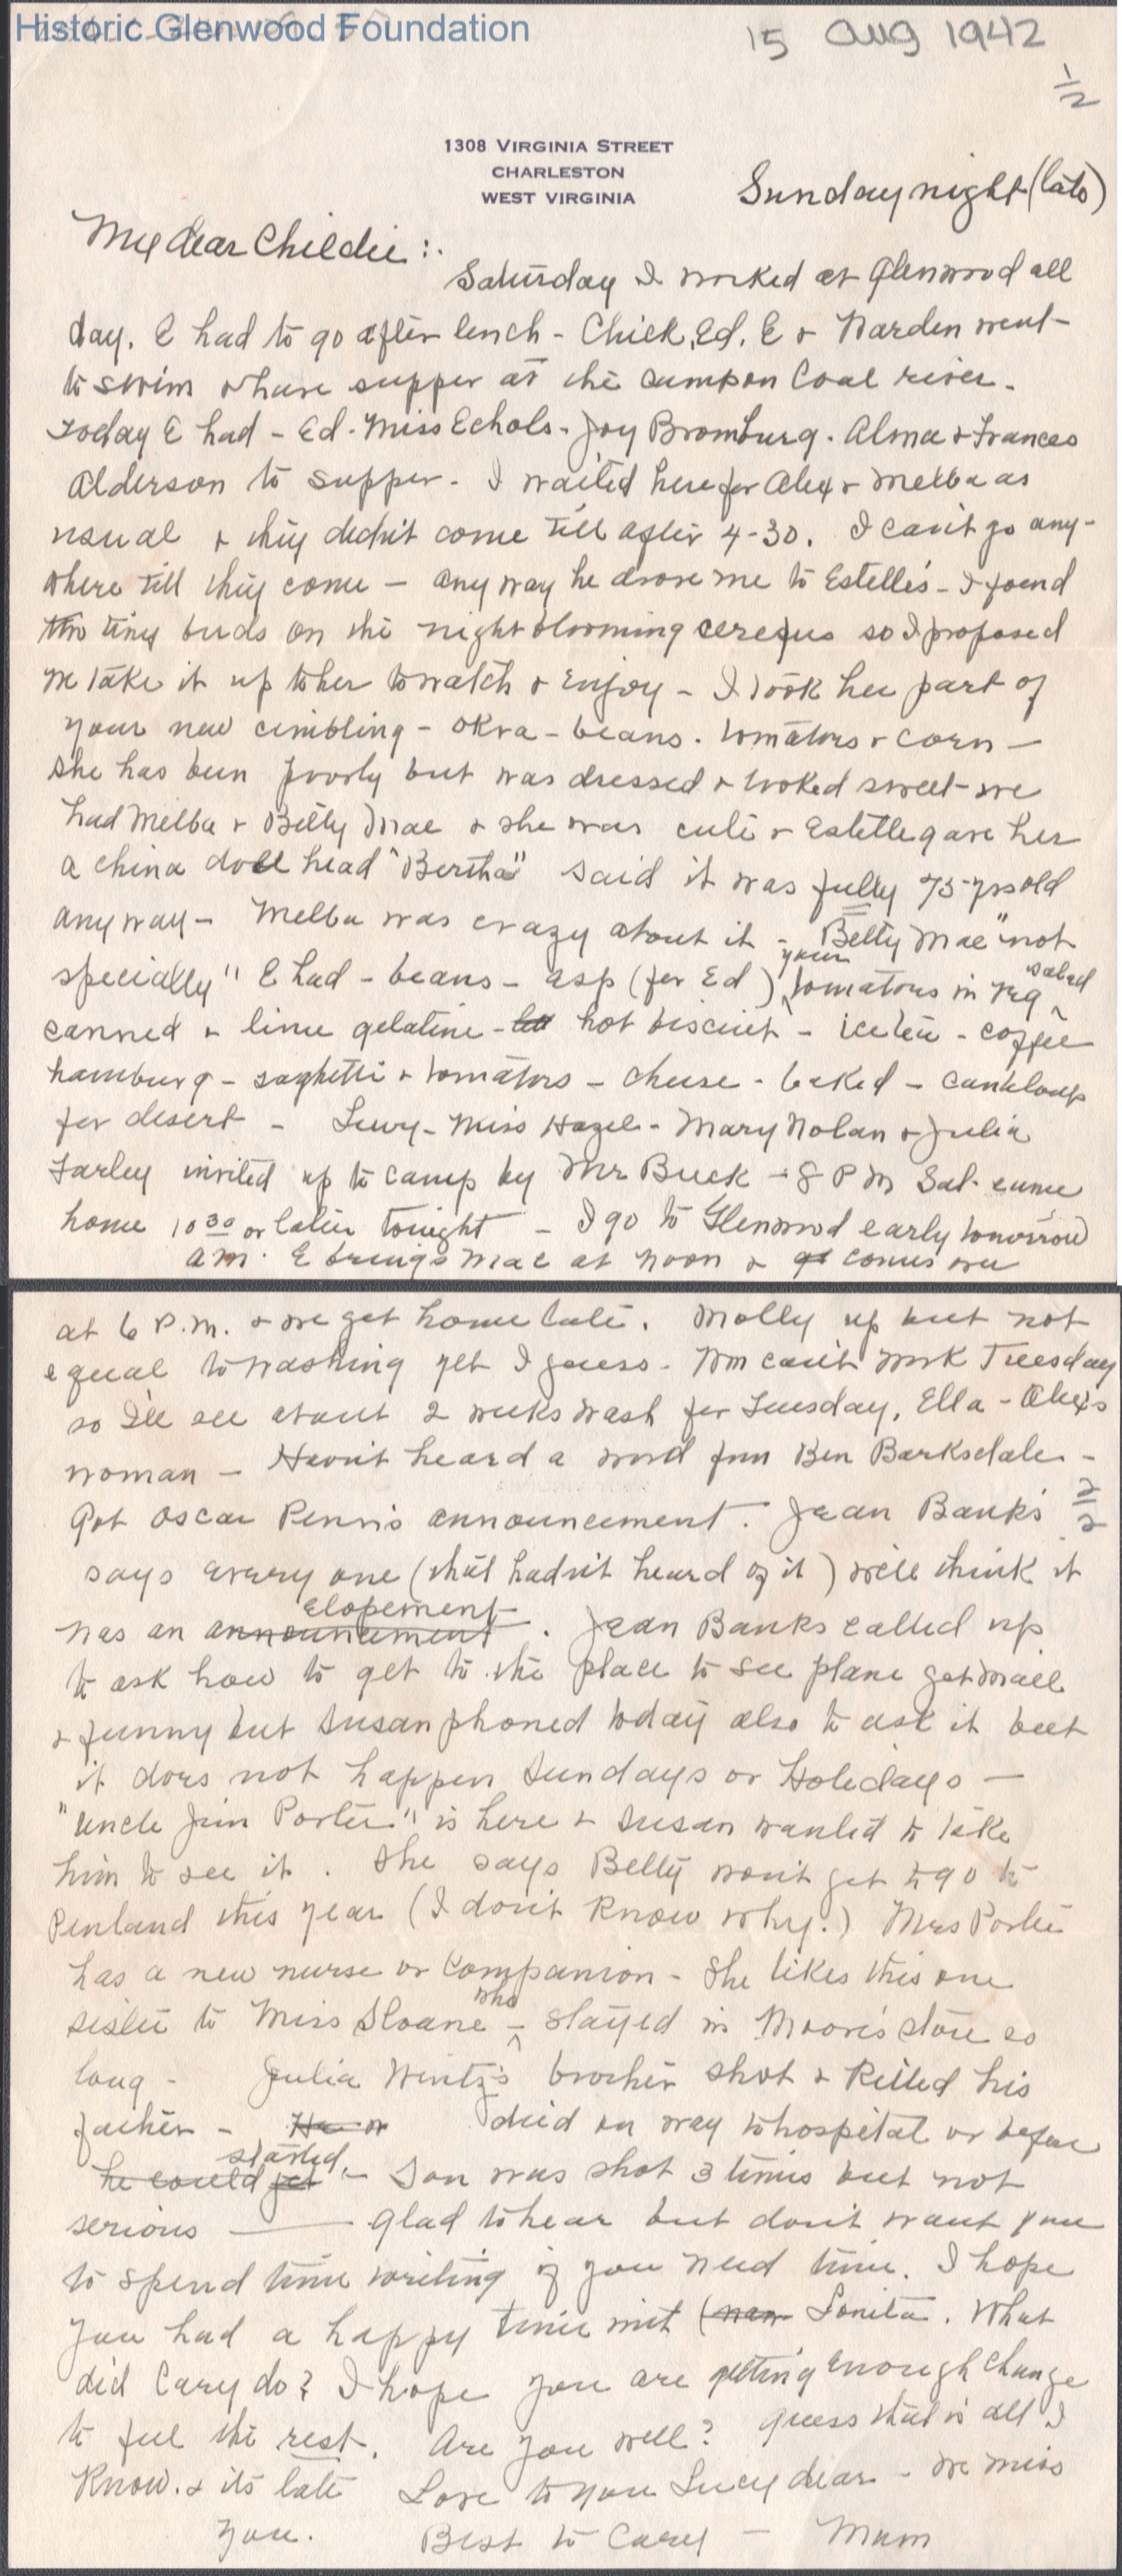 Historic Glenwood Foundation
15 Aug 1942
1/2
1308 VIRGINIA STREET
CHARLESTON
WEST VIRGINIA
Sunday night (late)
My dear Childie :.
Saturday I worked at Glenwood all
day. E had to go after lunch - Chick, Ed, E & Narden went
to swim & have supper at the camp on Coal river.
Today E had - Ed - Miss Echols - Joy Bromburg. Alma & Frances
Alderson to supper. I waited here for Alex & Melba as
usual & they didn't come till after 4-30. I can't go any-
where till they come - anyway he drove me to Estelle's - I found
two tiny buds on the nightblooming cereus so I proposed
we take it up to her to watch & enjoy - I took her part of
your new cimbling - okra - beans. tomatoes & corn -
she has been poorly but was dressed & looked sweet - we
had Melba & Betty Mae & she was cute & Estelle gave her
a china doll head "Bertha" said it was fully 75 yrs old
anyway - Melba was crazy about it - Betty Mae "not
specially" E had - beans - asp (for Ed) your tomatoes in veg salad
canned & lime gelatine - hot biscuit - ice tea - coffee
hamburg - saghetti & tomatoes - cheese - baked - canteloup
for desert - Lucy - Miss Hazel - Mary Nolan & Julia
Farley invited up to camp by Mr Buck - 8 P M Sat - came
home 10 30 or later tonight - I go to Glenwood early tomorrow
a m. E brings Mae at noon & comes over
at 6 P.M. & we get home late. Molly up but not
equal to washing yet I guess. Wm can't work Tuesday
so I'll see about 2 weeks wash for Tuesday, Ella - Alex's
woman - Haven't heard a word from Ben Barksdale -
Got Oscar Penn's announcement. Jean Banks 2/2
says every one (that hadn't heard of it) will think it
was an announcement elopement. Jean Banks called up
to ask how to get to the place to see plane get mail
& funny but Susan phoned today also to ask it but
it does not happen Sundays or Holidays -
"Uncle Jim Porter" is here & Susan wanted to take
him to see it. She says Betty won't get to go to
Penland this year (I don't know why.) Mrs Porter
has a new nurse or companion - she likes this one
sister to Miss Sloane - who stayed in Moore's store so
long - Julia Wentz's brother shot & killed his
father - He died on way to hospital or before
he could get started. - Son was shot 3 times but not
serious - glad to hear but don't want you
to spend time writing if you need time. I hope
you had a happy time with Lonita. What
did Cary do? I hope you are getting enough change
to feel the rest. Are you well? guess that is all I
know. & its late Love to you Lucy dear - we miss
you. Best to Carey - Mum